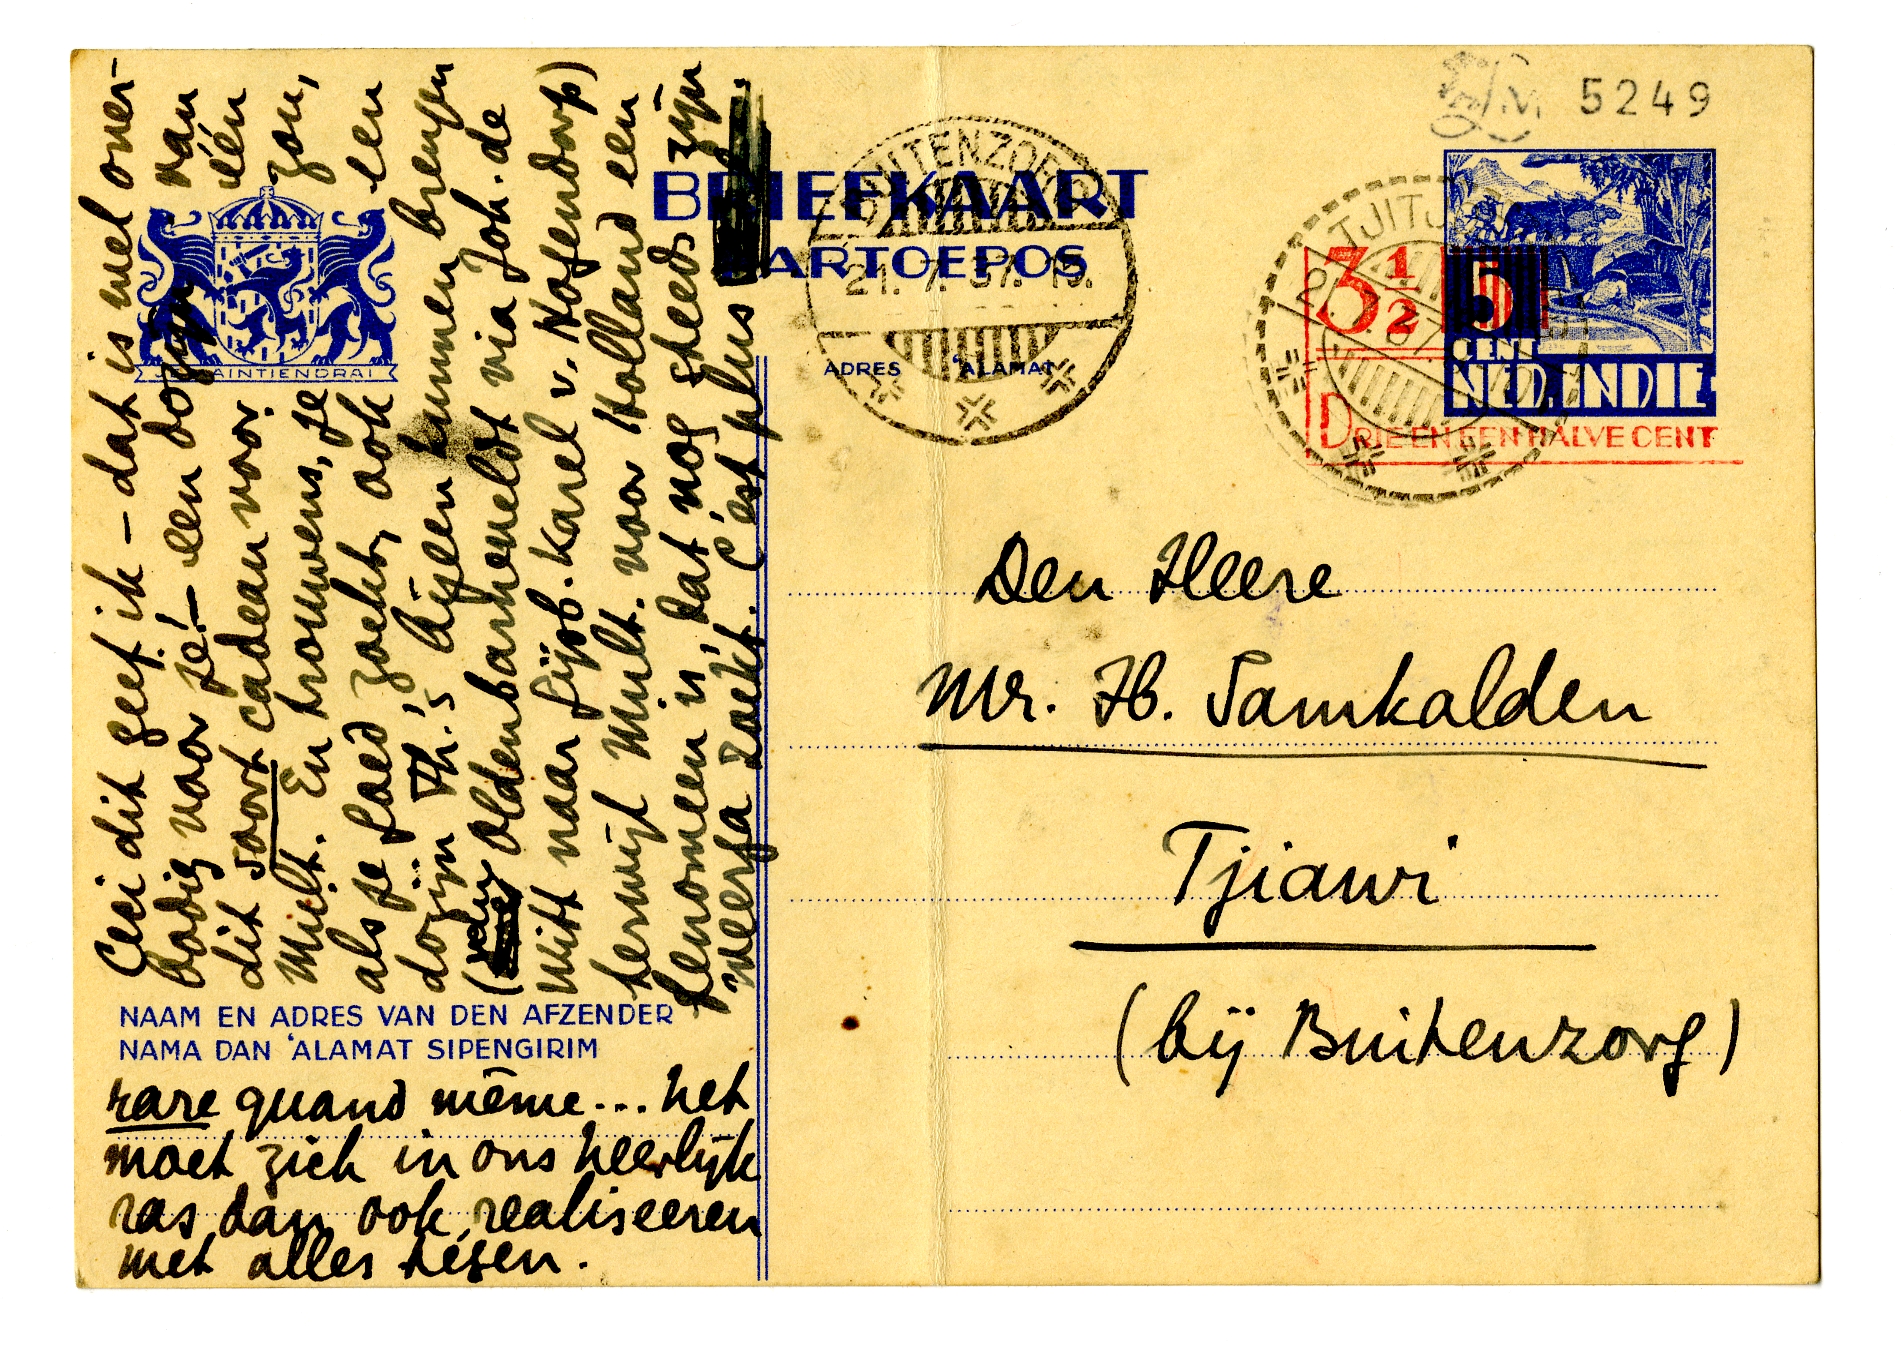 Ceci dit geef ik – dat is wel over-
bodig voor je! – een dozijn van
dit soort cadeau voor één
Mult. En trouwens, je zou,
als je goed zoekt, ook een
dozijn Th.'s bijeen kunnen brengen
( Oldenbarneveldt via Joh. de
Witt naar Gijsb. Karel v. Hogendorp)
terwijl Mult. voor Holland een
fenomeen is, dat nog steeds zijn
weerga zoekt. C'est plus
NAAM EN ADRES VAN DEN AFZENDER
NAMA DAN 'ALAMAT SIPENGIRIM
rare quand même... het
moet zich in ons heerlijk
ras dan ook realiseeren
met alles tégen.
JE MAINTIENDRAI
BRIEFKAART
KARTOEPOS
BUITENZORG
21. 7. 37. 15.
ADRES 'ALAMAT
5249
TJITJ
3½
5
CENT
NED. INDIE
DRIE EN EEN HALVE CENT
Den Heere
Mr. H. Samkalden
Tjiawi
(bij Buitenzorg)